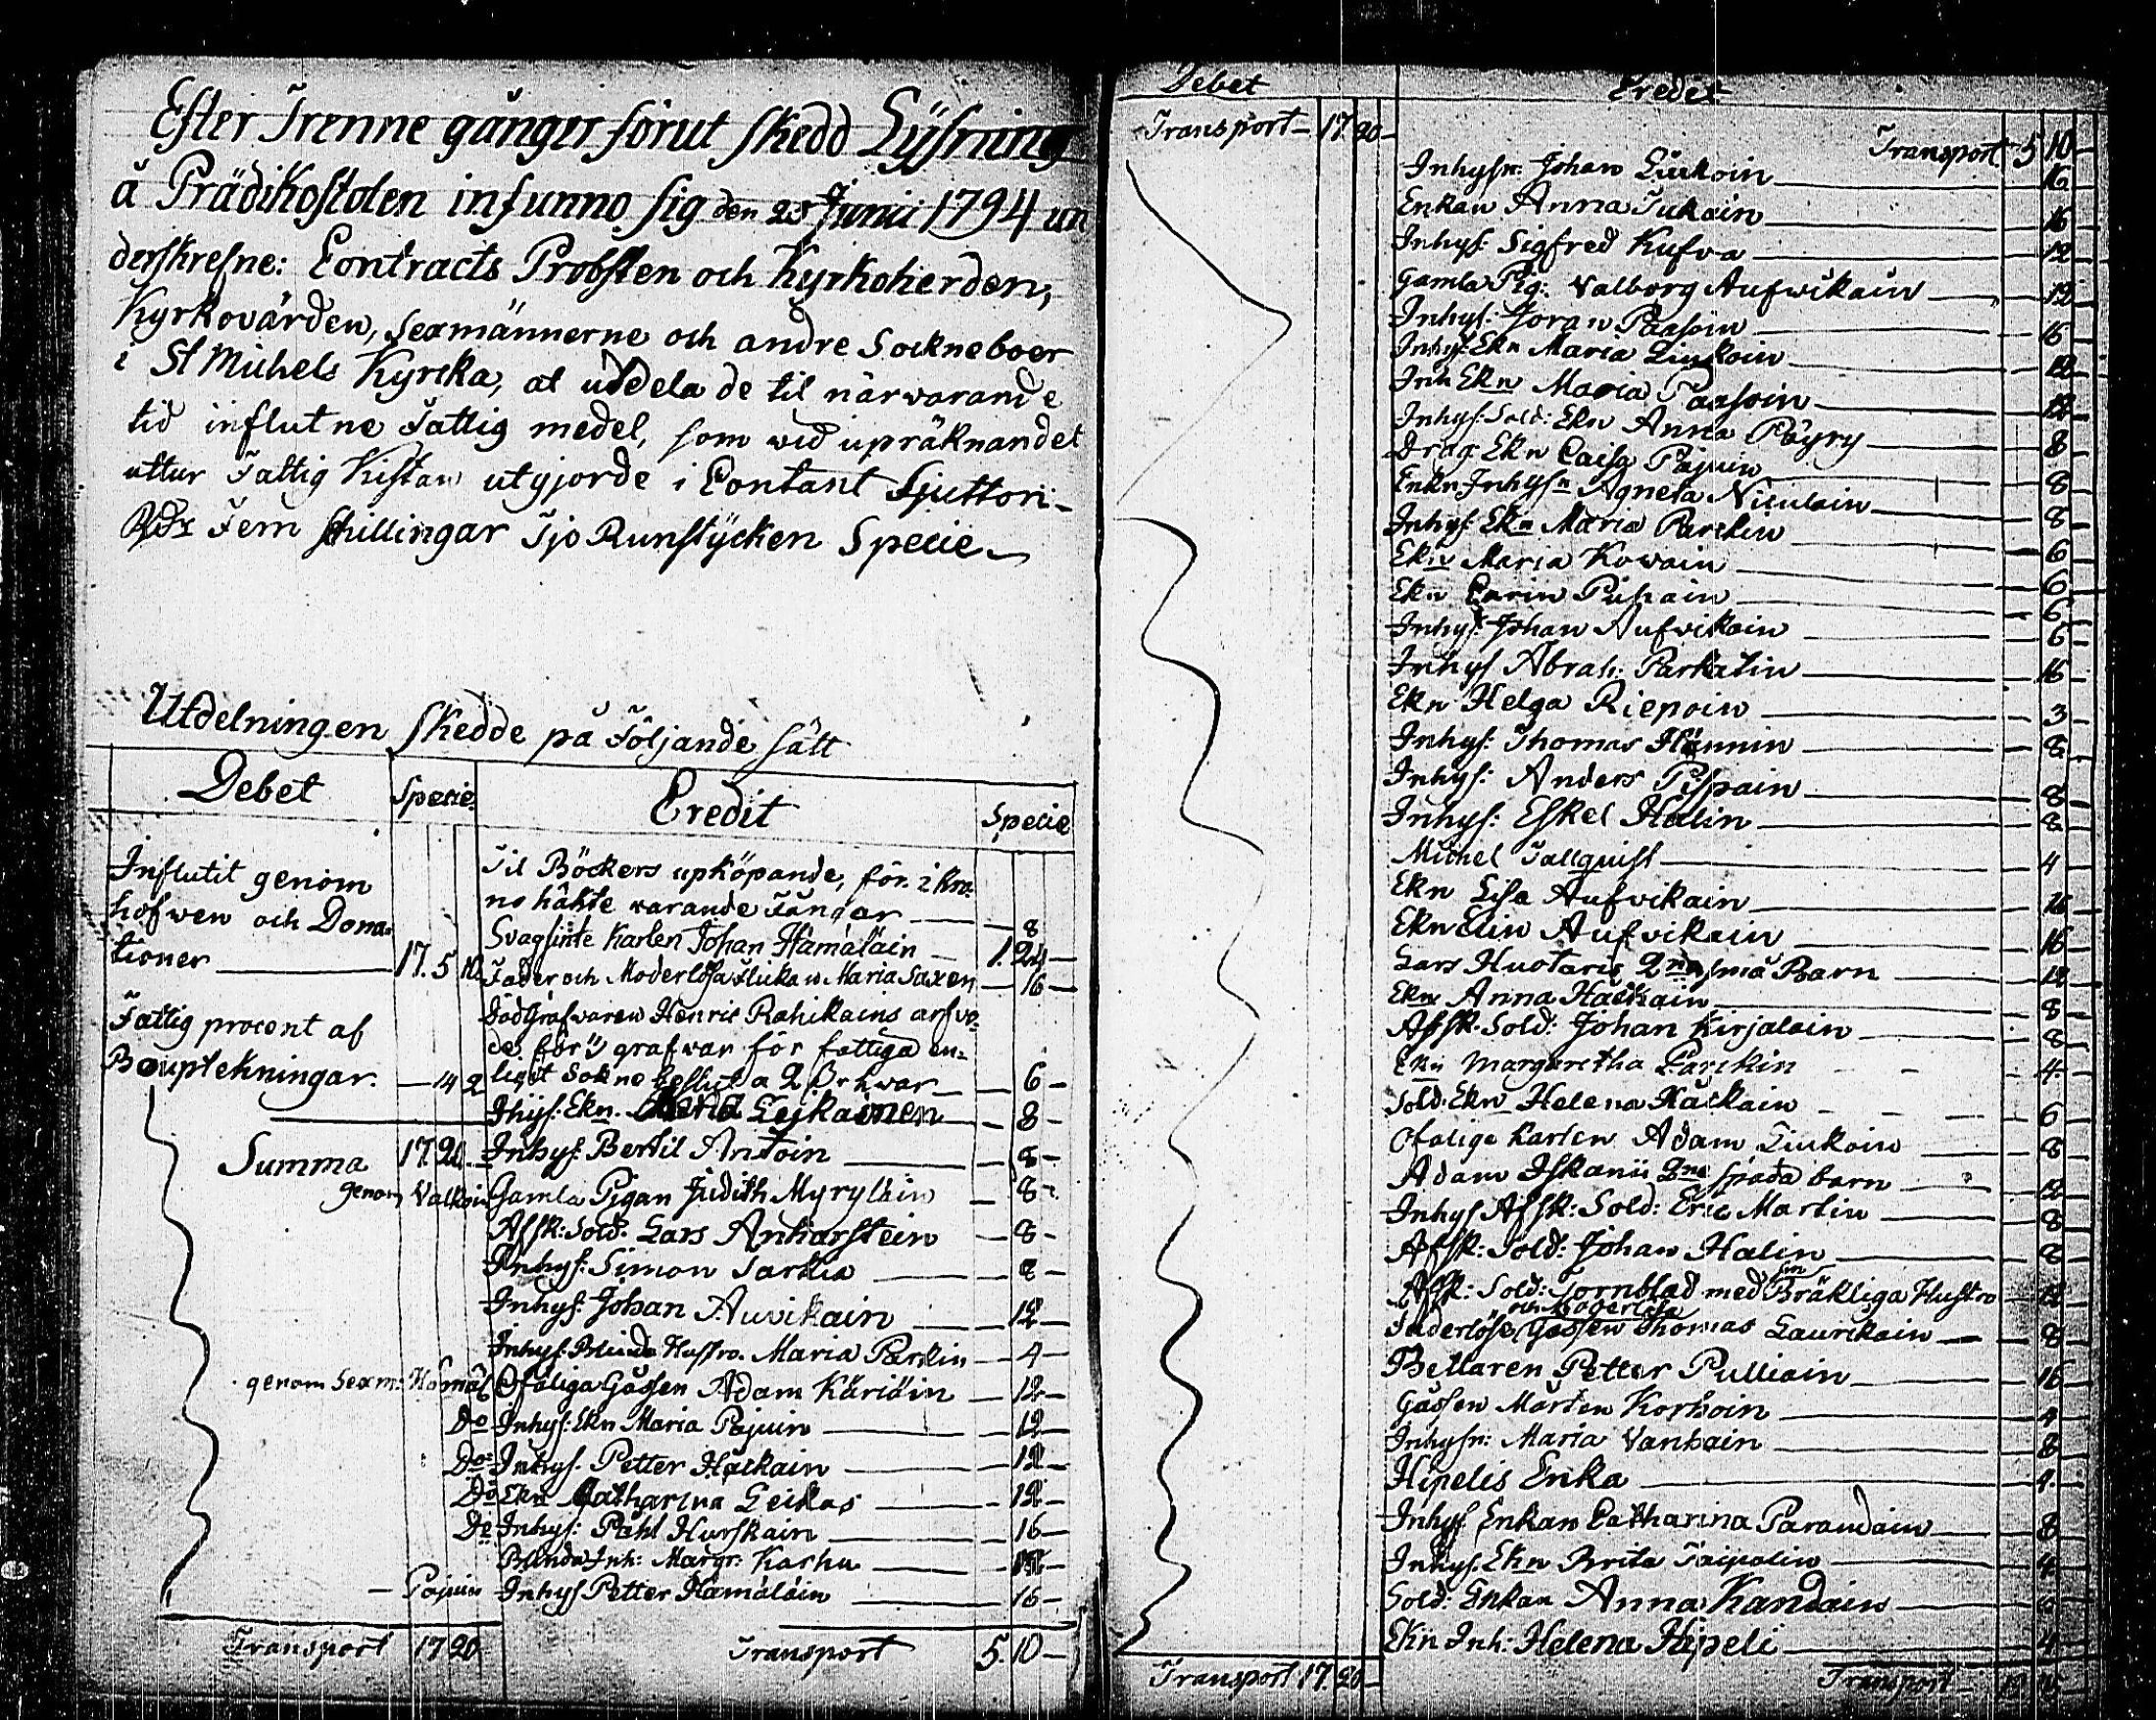 Efter Trenne gånger förut skedd Lysning
å Prädikostolen infunno sig den 25 Junii 1794 un
derskrefne: Contracts Probsten och Kyrkoherden,
Kyrkovärden, Sexmännerne och andre Sockneboer
i St Michels Kyrcka, at utdela de til närwarande
tid influtne Fattig medel, som wid upräknandet
uttur Fattig Kistan utgjorde i Contant Sjutton
Rdr Fem skillingar Tjo Runstycken Specie
Utdelningen skedde på Följande sätt
Debet Specie Credit Specie
Influtit genom
håfwen och Dona-
tioner 17. 5 10
Fattig procent af
Bouptekningar. 14 2
Summa 17. 20
genom Valkoin
genom Sexm: Hämäl
Do
Do
Do
Do
Pajuin
Transport 17 20
Til Böckers upköpande, för i kro-
no häkte warande Fångar 8
Svagsinte Karlen Johan Hämäläin 1. 24
Fader och Moderlösa Flickan Maria Saxen 16
Död Gräfvaren Henric Rahikains arfvo-
de för grafvar för fattiga en-
ligt Sokne beslut a 2 hwar 6
Inhys: Ekn. Leikainen 8
Inhys: Bertil Antoin 8
Gamla Pigan Judith Myryläin 8
Afsk: Sold: Lars Anharstein 8
Inhys: Simon Sarkia 8
Inhys: Johan Auvikain 12
Inhys: Blinda Hustro. Maria Parkin 4
Ofäliga Gossen Adam Käriäin 12
Inhys: Ekn Maria Pajuin 12
Inhys. Petter Häckain 12
Ekn Catharina Leikas 12
Inhys: Påhl Hurskain 16
Blinda Inh: Margr: Karhu
Inhys Petter Hämäläin 16
Transport 5. 10
Debet Credit
Transport 17. 20
Transport 5 10
Inhysn: Johan Liukoin 16
Enkan Anna Tukain 16
Inhys: Sigfred Kufva 12
Gamla Pig: Valborg Aufvikain 12
Inhys: Joran Paasoin 16
Inhys: Ekn Maria Liukoin 12
Inh Ekn Maria Paasoin 12
Inhys: Sold: Ekn Anna Pöyry 8
Drag: Ekn Caisa Pajuin 8
Enkn Inhysn Agneta Niculain 8
Inhys: Ekn Maria Parckin 6
Ekn Maria Kowain 6
Ekn Carin Pihain 6
Inhys: Johan Aufvikain 6
Inhys Abrah: Parkatin 16
Ekn Helga Riepoin 3
Inhys: Thomas Hännin 8
Inhys: Anders Pispain 8
Inhys: Eskel Halin 8
Michel Tallquist 4
Ekn Lisa Aufvikain 16
Ekn Elin Aufvikain 16
Lars Huotaris 2ne små Barn 12
Ekn Anna Häckain 8
Afsk. Sold: Johan Kirjalain 8
Ekn Margaretha Larckin 4
Sold: Ekn Helena Häckain 6
Ofälige Karlen Adam Liukoin 8
Adam Iskanii 2ne späda barn 12
Inhys Afsk: Sold: Eric Martin 8
Afsk: Sold: Johan Halin 8
Afsk: Sold: Tornblad med sin Bräkliga Hustro 12
Faderlöse och Moderlösa Gossen Thomas Laurikain 8
Bettlaren Petter Pulliain 16
Gossen Mårten Korhoin 4
Inhysn: Maria Vanhain 8
Hipelis Enka 4
Inhys Enkan Catharina Parandain 8
Inhys. Ekn Brita Taipalin 4
Sold: Enkan Anna Kandain
Ekn Inh: Helena Hipeli 4
Transport 17. 20
Transport